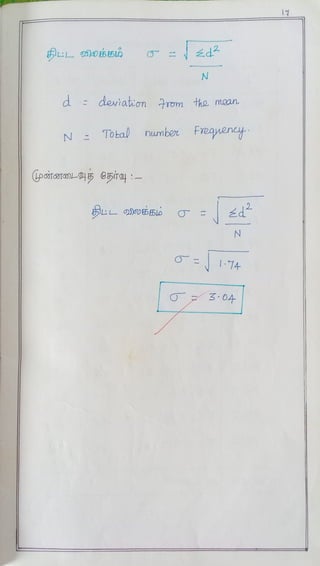 17
திட்ட விலக்கம் σ = √Σd²/N
d = deviation from the mean
N = Total number Frequency.
முன்னடைவுத் தேர்வு :-
திட்ட விலக்கம் σ = √Σd²/N
σ = √1.74
σ = 3.04